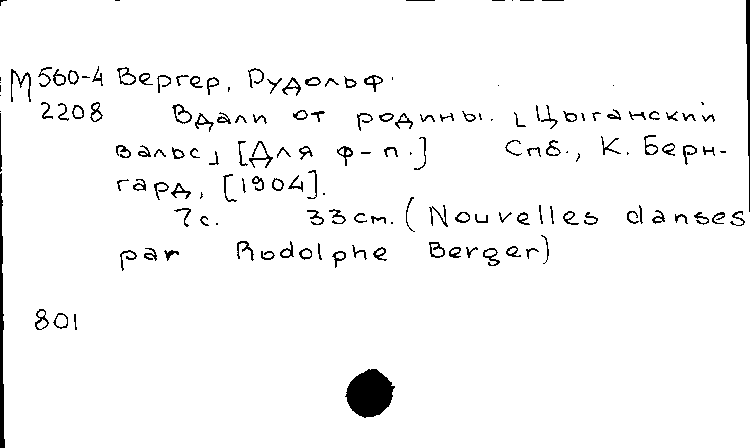 М 560-4 Бергер, Рудольф.
2208 Вдали от родины. ⌊Цыганский
вальс⌋ [Для ф-п.] Спб., К. Берн-
гард, [1904].
7 с. 33 см. (Nouvelles danses
par Rodolphe Berger)
801